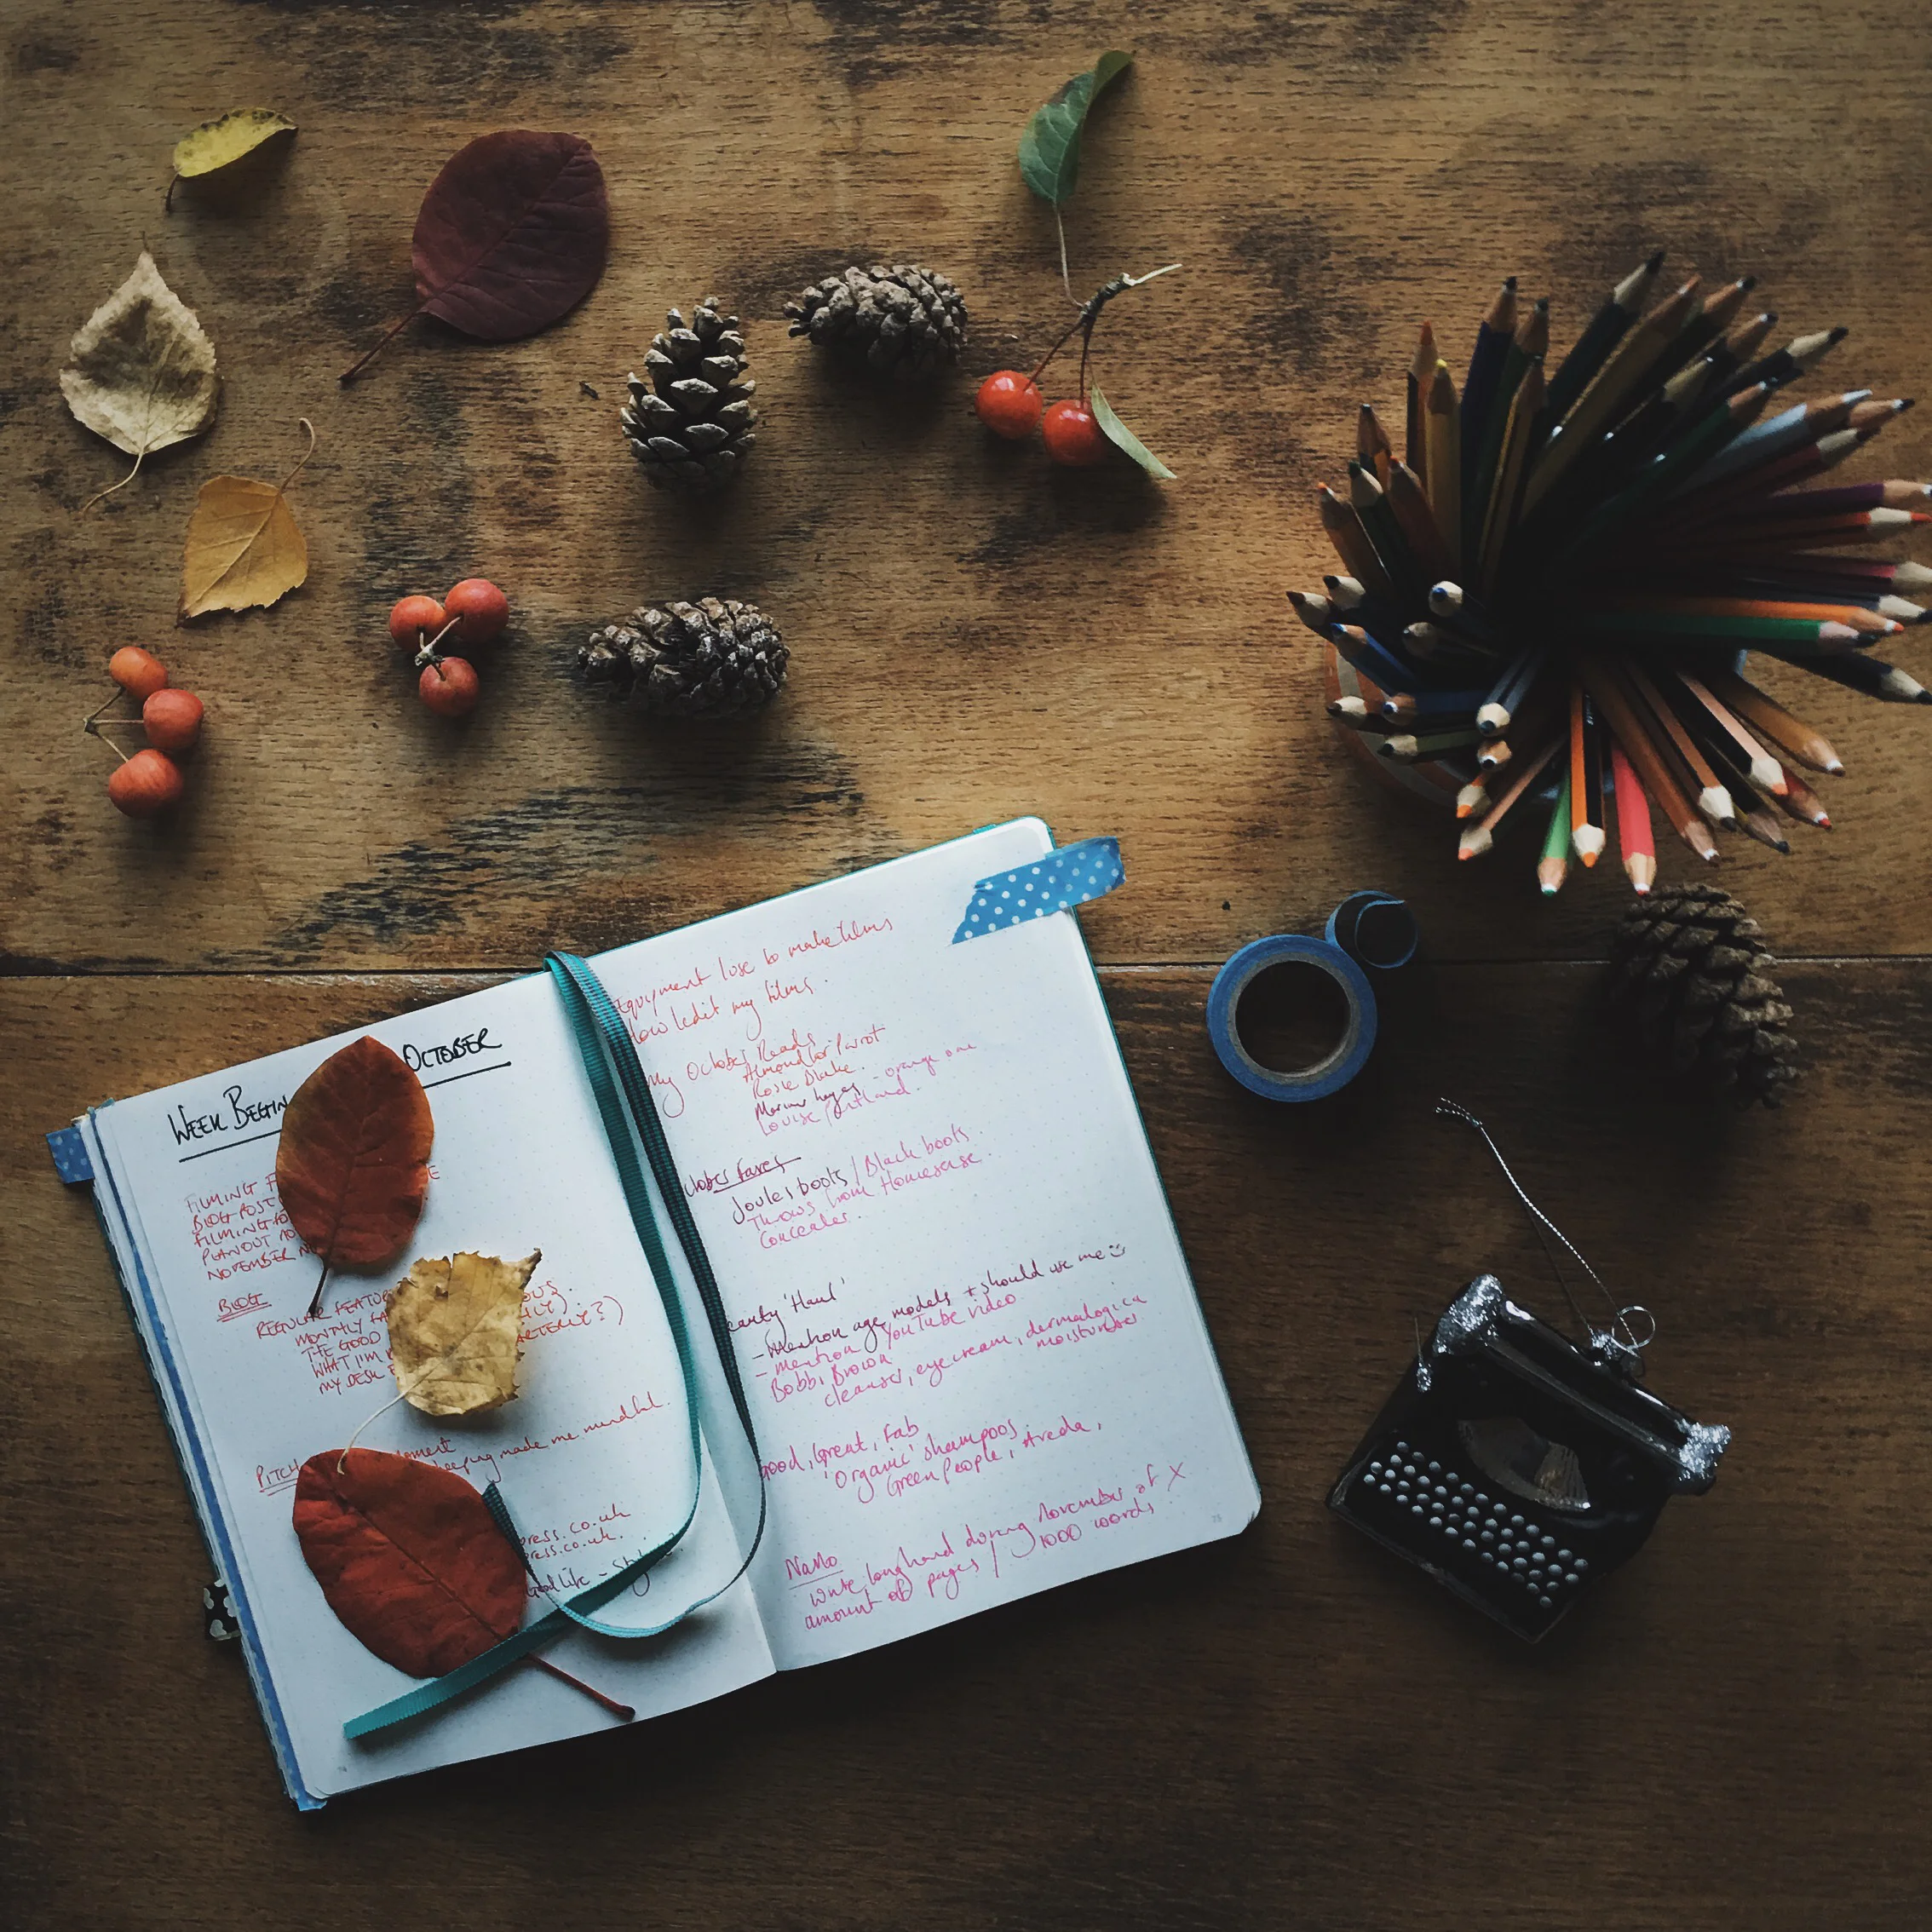 WEEK BEGIN OCTOBER
FILMING F E
BLOG POST
FILMING FO
PLAN OUT
NOVEMBER N
BLOG
REGULAR FEATU OUS.
MONTHLY FA LY).
THE GOOD ARTERLY?)
WHAT I'M
MY DESK
PITCH oment
keeping made me mindful.
press.co.uk
press.co.uk.
Good Life -
Equipment I use to make films
How I edit my films.
My October Reads
Almond for Parrot
Rosie Blake.
Marian Keyes - orange one
Louise Pentland.
ctober Faves
Joules boots / Black boots.
Throws from Homesense.
Concealer.
eauty 'Haul'
- Mention age models + should use me ☺
- mention YouTube video
- Bobbi Brown
cleanser, eyecream, dermalogica
moisturiser
Good, Great, Fab
'Organic' shampoos
Green People, Aveda,
NaNo
Write longhand during November of X
amount of pages / 1000 words